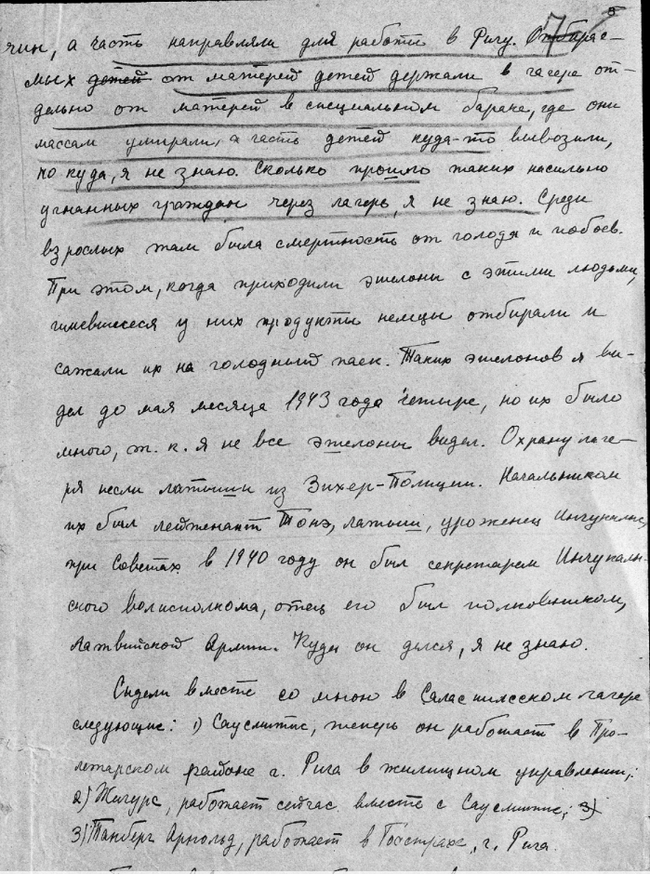 7 8
чин, а часть направляли для работы в Ригу. Отбирае-
мых детей от матерей детей держали в лагере от-
дельно от матерей в специальном бараке, где они
массам умирали, а часть детей куда-то вывозили,
но куда, я не знаю. Сколько прошло таких насильно
угнанных граждан через лагерь, я не знаю. Среди
взрослых там была смертность от голода и побоев.
При этом, когда приходили эшелоны с этими людьми,
имевшиеся у них продукты немцы отбирали и
сажали их на голодный паек. Таких эшелонов я ви-
дел до мая месяца 1943 года четыре, но их было
много, т. к. я не все эшелоны видел. Охрану лаге-
ря несли латыши из Зихер-Полиции. Начальником
их был лейтенант Тонэ, латыш, уроженец
при Советах в 1940 году он был секретарем Инчукальн-
ского Волисполкома, отец его был полковником,
Латвийской Армии. Куда он делся, я не знаю.
Сидели вместе со мною в Саласпилсском лагере
следующие: 1) Саусмитис, теперь он работает в Про-
летарском районе г. Рига в жилищном управлении;
2) Жигурс, работает сейчас вместе с Саусмитис; 3)
3) Танберг Арнольд, работает в Госстрахе, г. Рига.